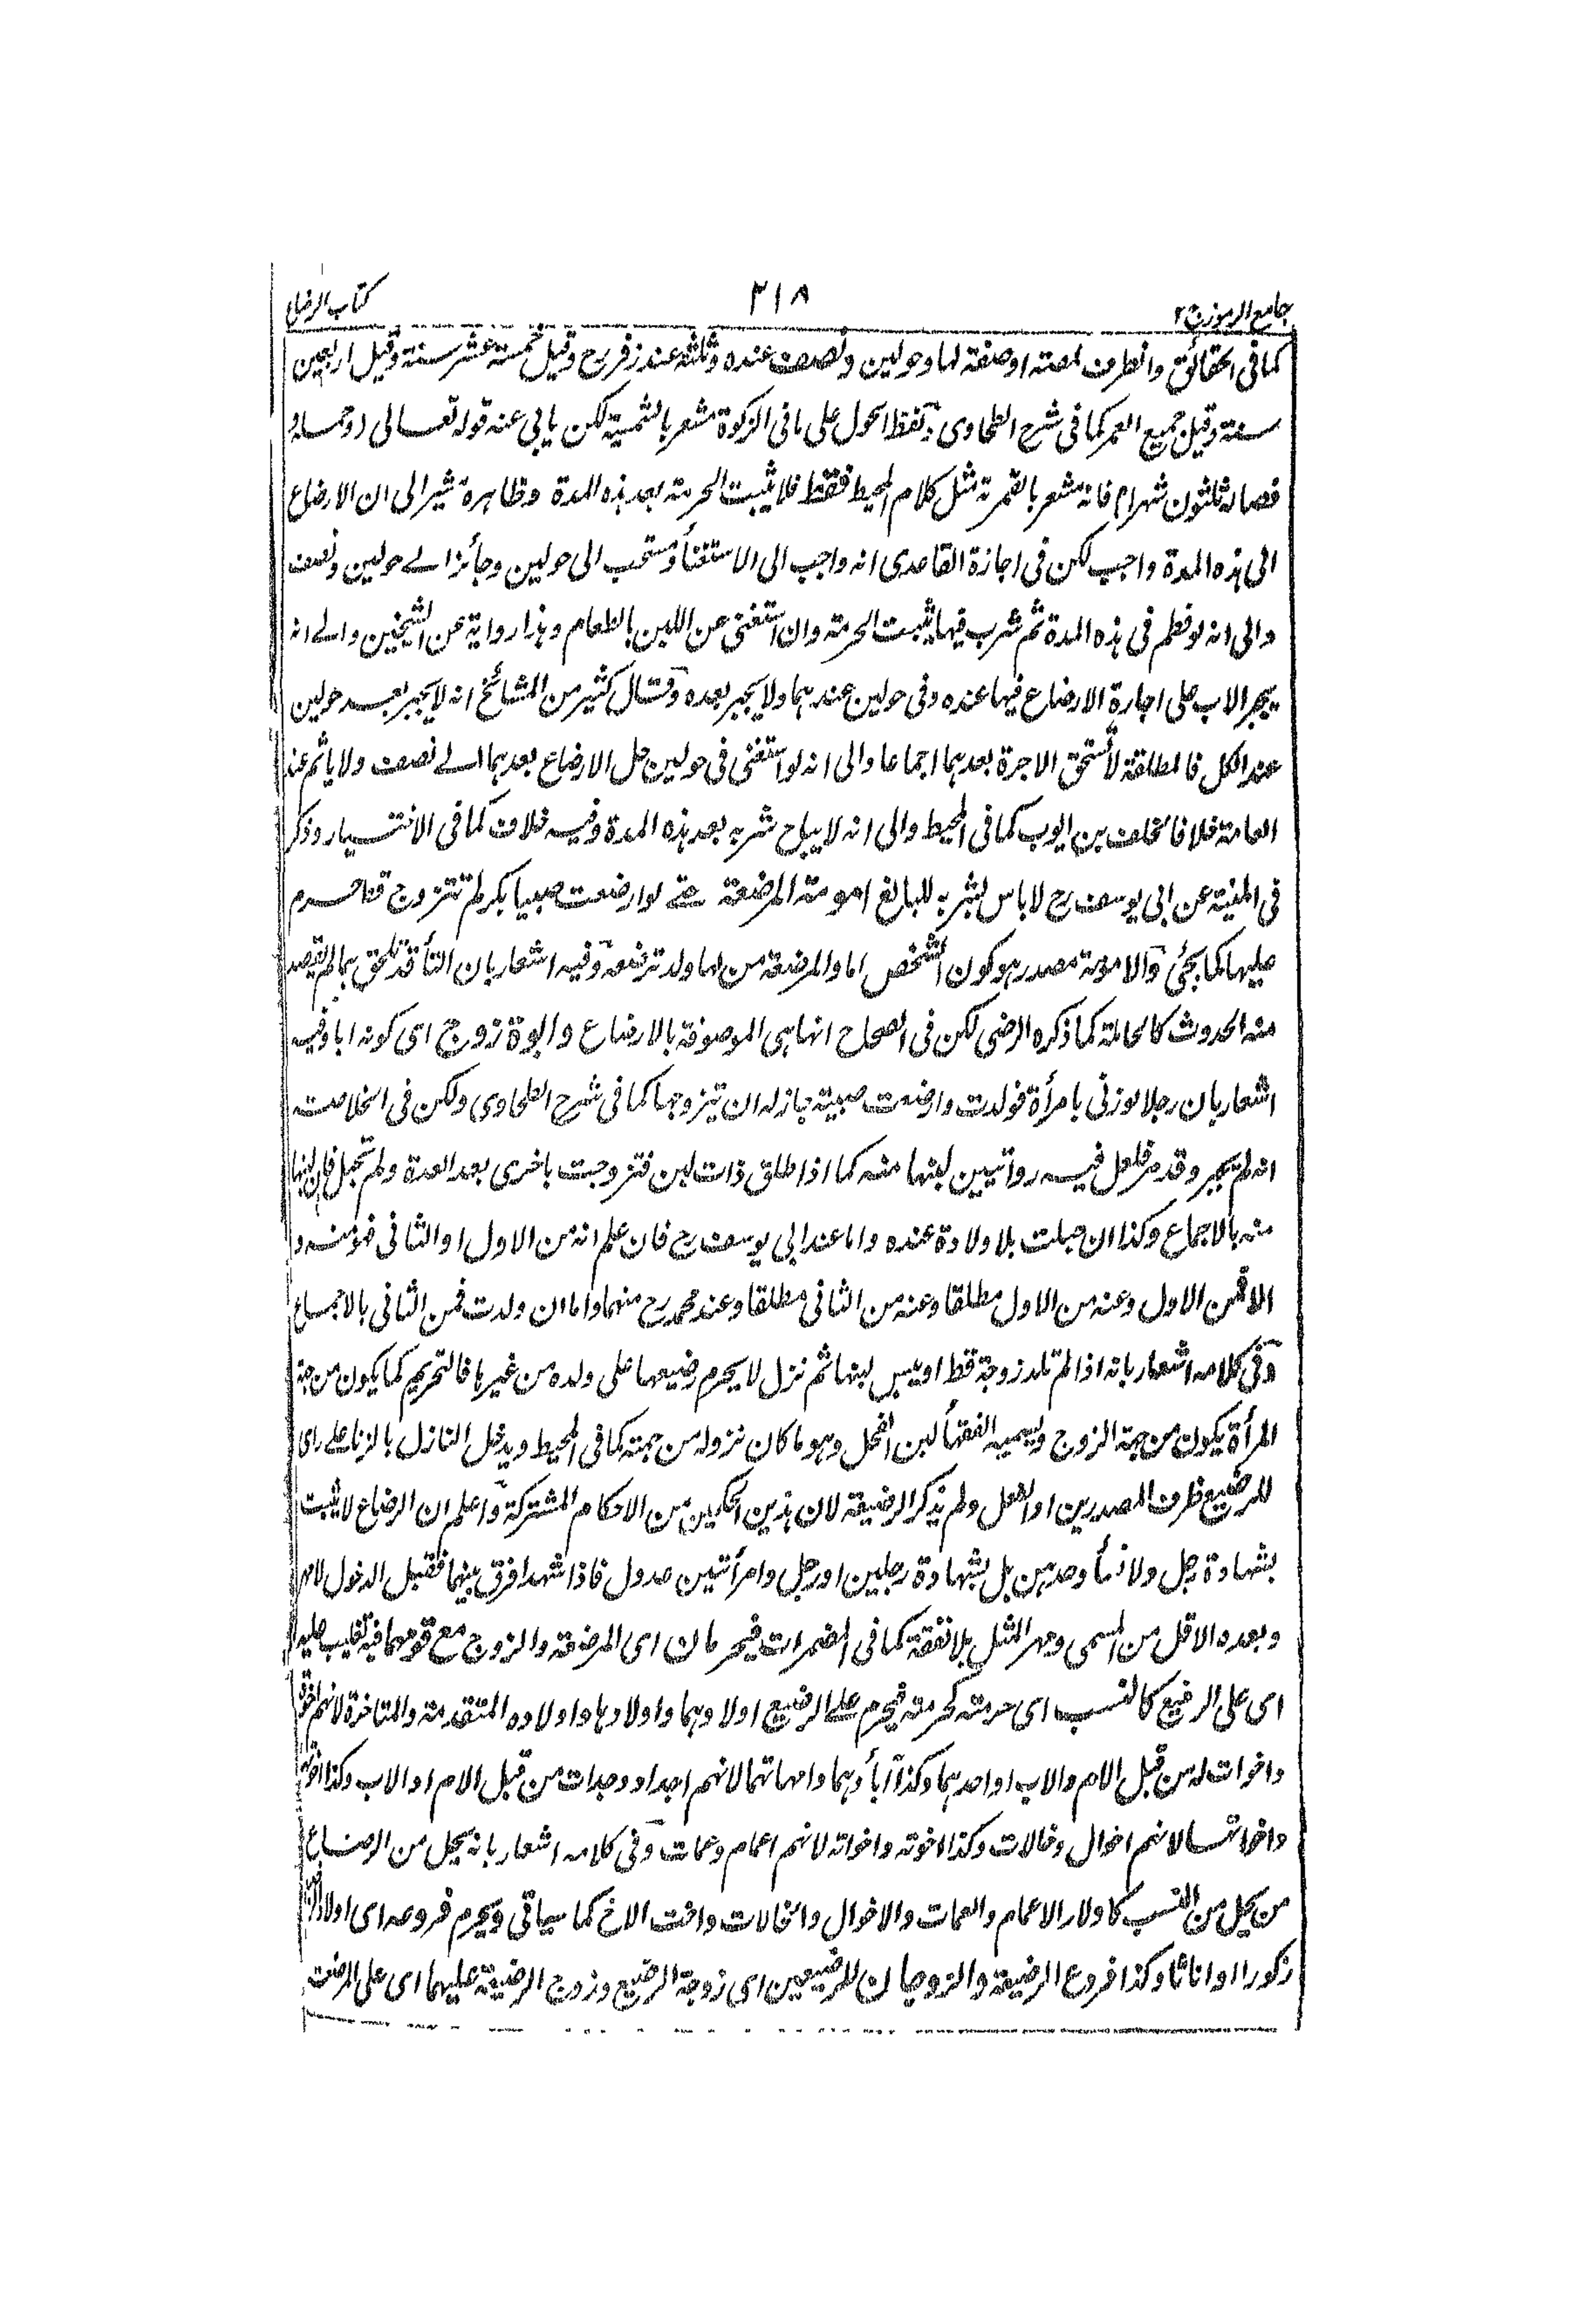 جامع الرموز ج ٢
٣١٨
كتاب الرضاع
كما فى الحقائق والظرف لمصته اوصفته لها وحولين ونصف عنده وثلثة عند زفر رح وقيل خمسة عشر سنة وقيل اربعين
سنة وقيل جميع العمر كما فى شرح الطحاوى ولفظ الحول على ما فى الزكوة مشعر بالشمسية لكن يابى عنه قوله تعالى (وحمله و
فصاله ثلثون شهرا) فانه مشعر بالقمرية مثل كلام المحيط فقط فلا يثبت الحرمة بعد هذه المدة وظاهره مشير الى ان الارضاع
الى هذه المدة واجب لكن فى اجازة القاعدى انه واجب الى الاستغناء ومستحب الى حولين وجائز الے حولين ونصف
والى انه لو فطم فى هذه المدة ثم شرب فيها يثبت الحرمة وان استغنى عن اللبن بالطعام وهذا رواية عن الشيخين والے انه
يجبر الاب على اجارة الارضاع فيها عنده وفى حولين عندهما ولا يجبر بعده وقال كثير من المشائخ انه لا يجبر بعد حولين
عند الكل فالمطلقة لا تستحق الاجرة بعدهما اجماعا والى انه لو استغنى فى حولين حل الارضاع بعدهما الے نصف ولا ياثم عند
العامة خلافا لخلف بن ايوب كما فى المحيط والى انه لا يباح شربه بعد هذه المدة وفيه خلاف كما فى الاختيار وذكر
فى المنية عن ابى يوسف رح لا باس بشربه للبالغ امومة المرضعة حتے لو ارضعت صبيا بكر لم تتزوج قط حرم
عليها كما يجئ والامومة مصدر هو كون الشخص اما والمرضعة من لها ولد ترضعه وفيه اشعار بان التاء قد تلحق بما لم يقصد
منه الحدوث كالحاملة كما ذكره الرضى لكن فى الصحاح انها هى الموصوفة بالارضاع وابوة زوج اى كونه ابا وفيه
اشعار بان رجلا لو زنى بامرأة فولدت وارضعت صبية جاز له ان تيزوجها كما فى شرح الطحاوى ولكن فى الخلاصة
انه لم يجز وقد مر فلعل فيه روايتين لبنها منه كما اذا طلق ذات لبن فتزوجت باخرى بعد العدة ولم تحبل فان لبنها
منه بالاجماع وكذا ان حبلت بلا ولادة عنده واما عند ابى يوسف رح فان علم انه من الاول او الثانى فهو منه و
الا فمن الاول وعنه من الاول مطلقا وعنه من الثانى مطلقا وعند محمد رح منهما واما ان ولدت فمن الثانى بالاجماع
وفى كلامه اشعار بانه اذا لم تلد زوجة قط او يبس لبنها ثم نزل لا يحرم رضيعها على ولده من غيرها فالتحريم كما يكون من جهة
المرأة يكون من جهة الزوج ويسميه الفقهاء لبن الفحل وهو ما كان نزوله من جهته كما فى المحيط ويدخل النازل بالزنا علے راى
للرضيع ظرف المصدرين او الفعل ولم يذكر الرضيعة لان هذين الحكمين من الاحكام المشتركة واعلم ان الرضاع لا يثبت
بشهادة رجل ولا نساء وحدهن بل بشهادة رجلين او رجل وامرأتين عدول فاذا شهدا فرق بينهما فقبل الدخول لا مهر
وبعده الاقل من المسمى ومهر المثل بلا نفقة كما فى المضمرات فيحرمان اى المرضعة والزوج مع قومهما فيه تغليب عليه
اى على الرضيع كالنسب اى حرمته كحرمته فيحرم علے الرضيع اولادهما واولادها واولاده المتقدمة والمتاخرة لانهم اخوة
واخوات له من قبل الام والاب او احدهما وكذا آباؤهما وامهاتهما لانهم اجداد وجدات من قبل الام او الاب وكذا اخوتها
واخواتها لانهم اخوال وخالات وكذا اخوته واخواته لانهم اعمام وعمات وفى كلامه اشعار بانه يحل من الرضاع
من يحل من النسب كاولاد الاعمام والعمات والاخوال والخالات واخت الاخ كما سياتى ويحرم فروعه اى اولاد
ذكورا او اناثا وكذا فروع الرضيعة والزوجان للرضيعين اى زوجة الرضيع وزوج الرضيعة عليهما اى على المرضعة